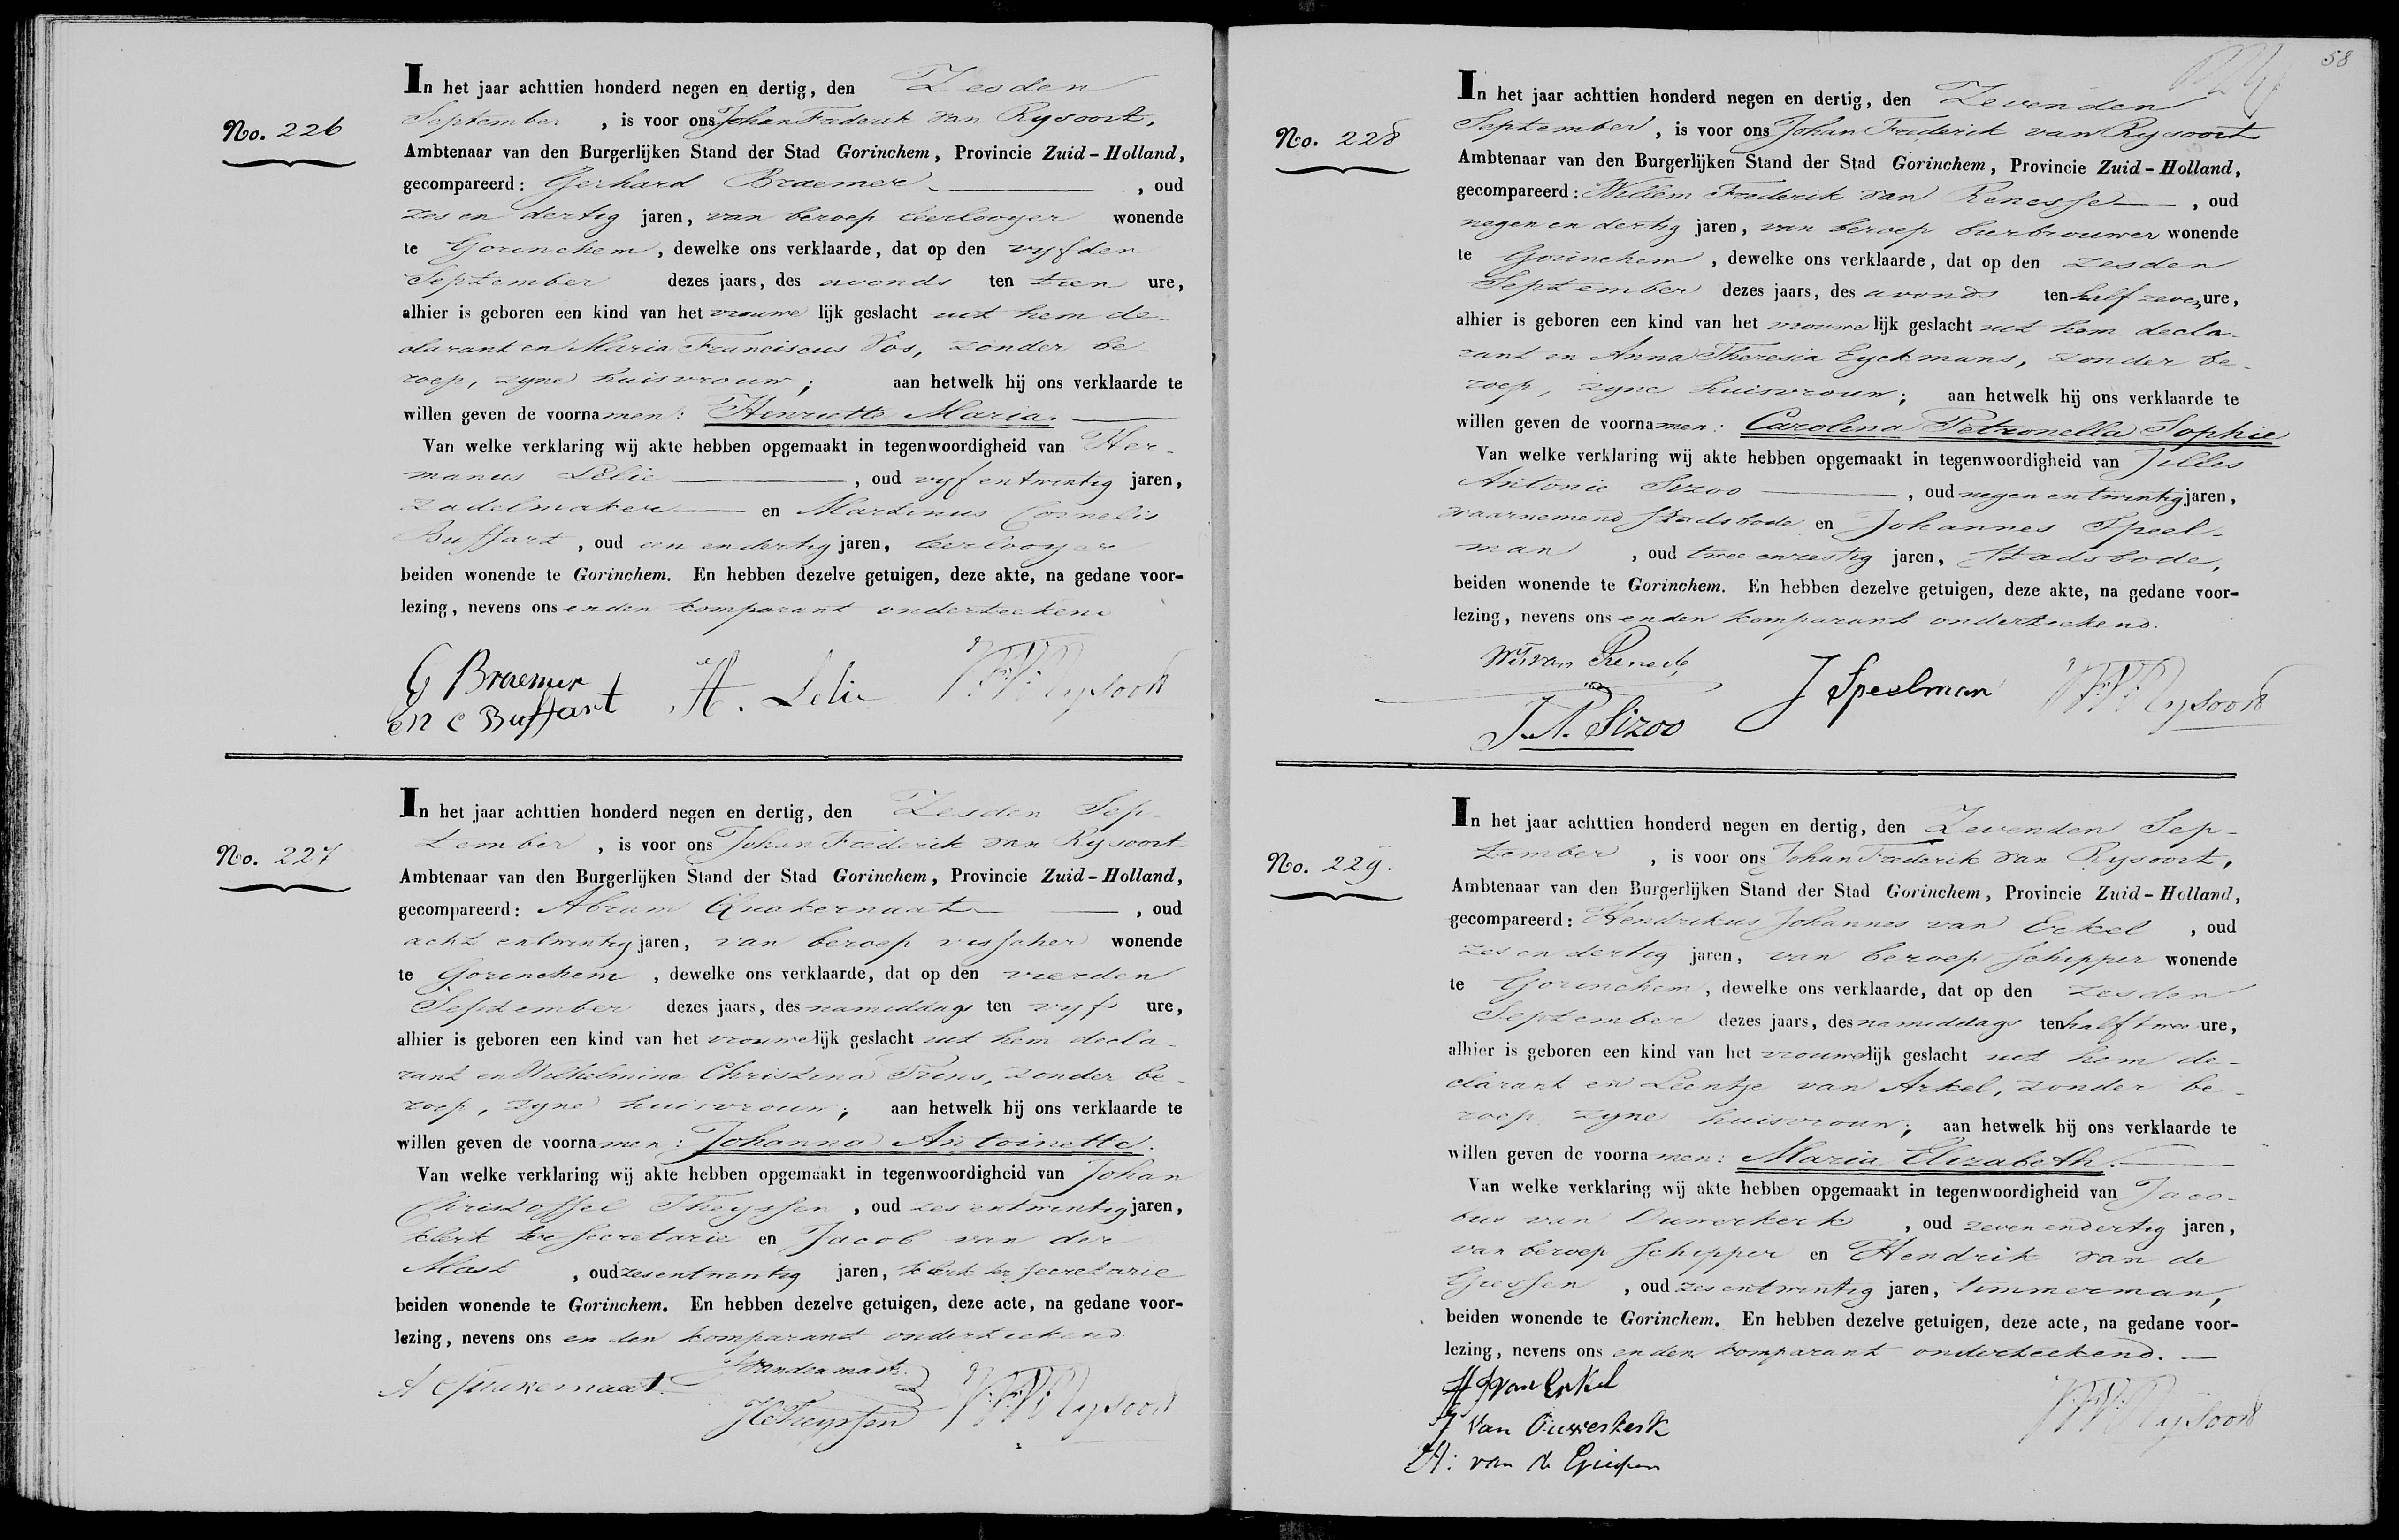 No. 226
In het jaar achttien honderd negen en dertig, den Zesden
September , is voor ons Johan Frederik van Rysoort,
Ambtenaar van den Burgerlijken Stand der Stad Gorinchem, Provincie Zuid-Holland,
gecompareerd: Gerhard Braemer , oud
zes en dertig jaren, van beroep leerlooyer wonende
te Gorinchem, dewelke ons verklaarde, dat op den vyfden
September dezes jaars, des avonds ten tien ure,
alhier is geboren een kind van het vrouwe lijk geslacht uit hem de-
clarant en Maria Franciscus Vos, zonder be-
roep, zyne huisvrouw; aan hetwelk hij ons verklaarde te
willen geven de voornamen: Henriette Maria.
Van welke verklaring wij akte hebben opgemaakt in tegenwoordigheid van Her-
manus Lelie , oud vyf entwintig jaren,
zadelmaker en Martinus Cornelis
Buffart , oud een en dertig jaren, leerlooyer
beiden wonende te Gorinchem. En hebben dezelve getuigen, deze akte, na gedane voor-
lezing, nevens ons en den komparant onderteekend
G Braemer H. Lelie
M C Buffart
No. 227
In het jaar achttien honderd negen en dertig, den Zesden Sep-
tember , is voor ons Johan Frederik van Rysoort
Ambtenaar van den Burgerlijken Stand der Stad Gorinchem, Provincie Zuid-Holland,
gecompareerd: Abram Quakernaat , oud
acht entwintig jaren, van beroep visscher wonende
te Gorinchem , dewelke ons verklaarde, dat op den vierden
September dezes jaars, des namiddags ten vyf ure,
alhier is geboren een kind van het vrouwelijk geslacht uit hem decla-
rant en Wilhelmina Christina Prins, zonder be-
roep, zyne huisvrouw; aan hetwelk hij ons verklaarde te
willen geven de voornamen: Johanna Antoinette.
Van welke verklaring wij akte hebben opgemaakt in tegenwoordigheid van Johan
Christoffel Theyssen , oud zes entwintig jaren,
klerk ter secretarie en Jacob van der
Mast , oud zes entwintig jaren, klerk ter secretarie
beiden wonende te Gorinchem. En hebben dezelve getuigen, deze acte, na gedane voor-
lezing, nevens ons en den komparant onderteekend
J vandermast
JCTheyssen
58
No. 228
In het jaar achttien honderd negen en dertig, den Zevenden
September, is voor ons Johan Frederik van Rysoort
Ambtenaar van den Burgerlijken Stand der Stad Gorinchem, Provincie Zuid-Holland,
gecompareerd: Willem Frederik van Renesse , oud
negen en dertig jaren, van beroep bierbrouwer wonende
te Gorinchem , dewelke ons verklaarde, dat op den zesden
September dezes jaars, des avonds ten half zeven ure,
alhier is geboren een kind van het vrouwe lijk geslacht uit hem decla-
rant en Anna Theresia Eyckmans, zonder be-
roep, zyne huisvrouw; aan hetwelk hij ons verklaarde te
willen geven de voornamen: Carolina Petronella Sophie
Van welke verklaring wij akte hebben opgemaakt in tegenwoordigheid van Jilles
Antonie Sizoo , oud negen en twintig jaren,
waarnemend stadsbode en Johannes Speel-
man , oud twee enzestig jaren, stadsbode,
beiden wonende te Gorinchem. En hebben dezelve getuigen, deze akte, na gedane voor-
lezing, nevens ons en den komparant onderteekend.
J Speelman
J.A. Sizoo
No. 229.
In het jaar achttien honderd negen en dertig, den Zevenden Sep-
tember , is voor ons Johan Frederik van Rysoort,
Ambtenaar van den Burgerlijken Stand der Stad Gorinchem, Provincie Zuid-Holland,
gecompareerd: Hendrikus Johannes van Erkel , oud
zes en dertig jaren, van beroep schipper wonende
te Gorinchem, dewelke ons verklaarde, dat op den zesden
September dezes jaars, des namiddags ten half twee ure,
alhier is geboren een kind van het vrouwelijk geslacht uit hem de-
clarant en Leentje van Arkel, zonder be-
roep, zyne huisvrouw; aan hetwelk hij ons verklaarde te
willen geven de voornamen: Maria Elizabeth.
Van welke verklaring wij akte hebben opgemaakt in tegenwoordigheid van Jaco-
bus van Ouwerkerk , oud zeven en dertig jaren,
van beroep schipper en Hendrik van de
Giessen , oud zes entwintig jaren, timmerman,
beiden wonende te Gorinchem. En hebben dezelve getuigen, deze acte, na gedane voor-
lezing, nevens ons en den komparant onderteekend.
H J van Erkel
J van Ouwerkerk
H: van de Giessen